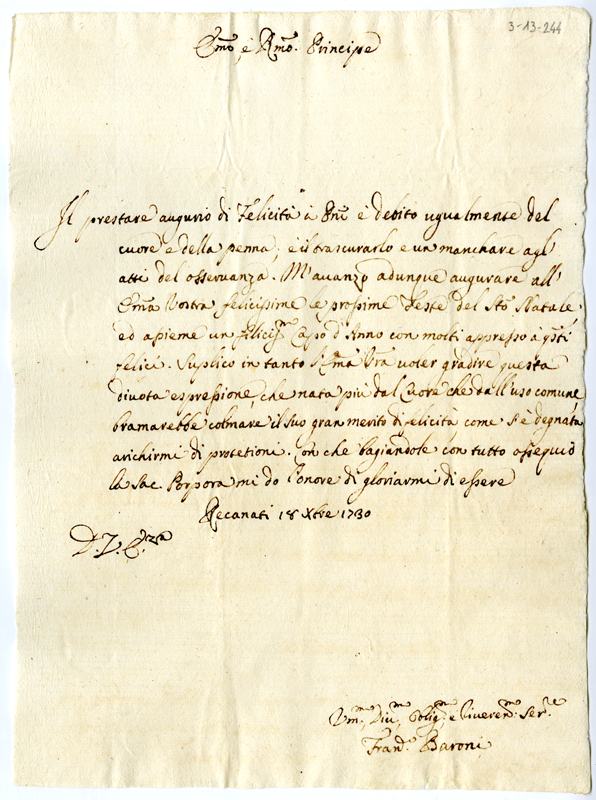 3-13-244
Emo, è Rmo. Principe
Il prestare augurio di Felicità à è debito ugualmente del
cuore e della penna, e il trascurarlo e un manchare agl'
atti del osseruanza. M'auanzo adunque augurare all'
Ema Vostra felicissime le prossime Feste del Sto Natale
ed assieme un felicismo Capo d'Anno con molti appresso à qsti
felici. Suplico in tanto Vra voler gradire questa
diuota espressione, che nata più dal Cuore che dall'uso comune,
bramarebbe colmare il suo gran merito di felicità come s'è degnata
arichirmi di protetioni. Con che bagiandole con tutto ossequio
la Sac. Porpora mi do l'onore di gloriarmi di essere
Recanati 18 Xbre 1730
D. V. Eza
Vmo, Diumo, Obligmo e Riuerendmo Serre
Frando Baroni